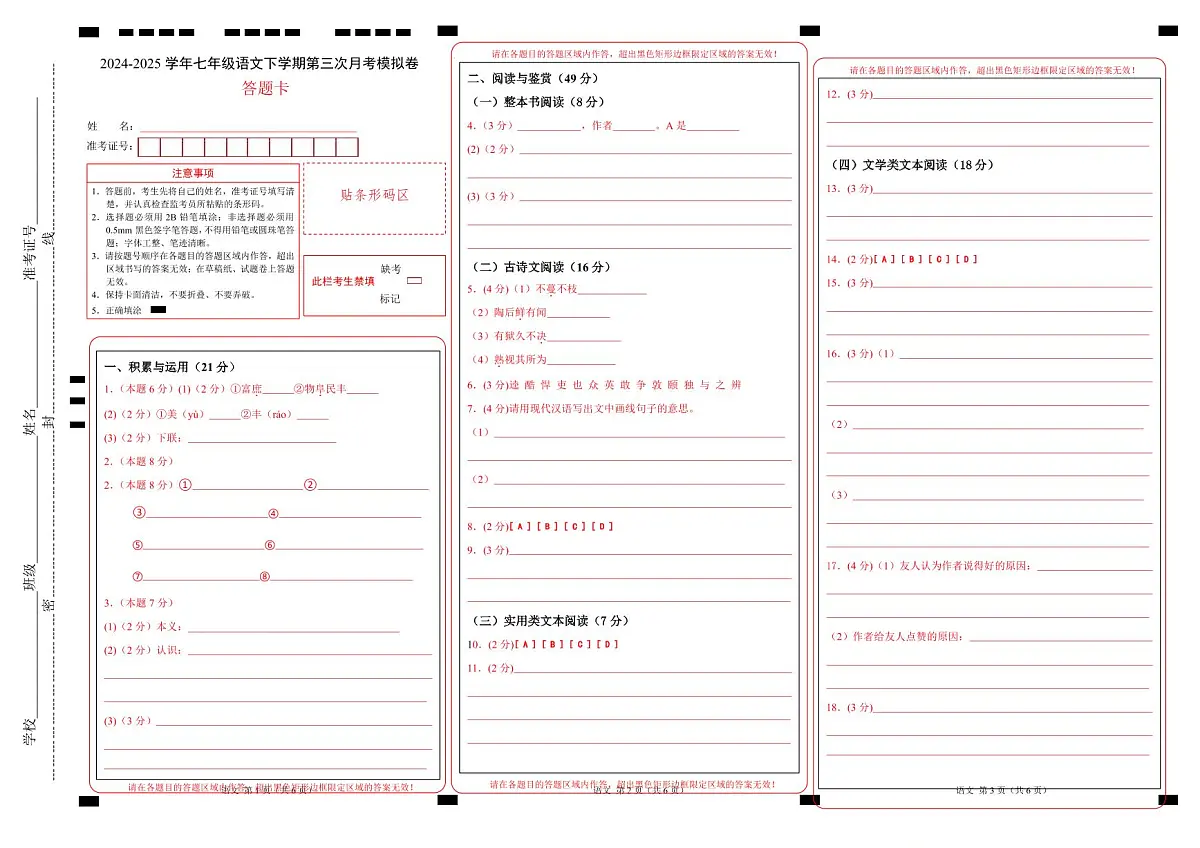 2024-2025 学年七年级语文下学期第三次月考模拟卷
答题卡
姓 名：
准考证号：
注意事项
1．答题前，考生先将自己的姓名，准考证号填写清
楚，并认真检查监考员所粘贴的条形码。
2．选择题必须用 2B 铅笔填涂；非选择题必须用
0.5mm 黑色签字笔答题，不得用铅笔或圆珠笔答
题；字体工整、笔迹清晰。
3．请按题号顺序在各题目的答题区域内作答，超出
区域书写的答案无效；在草稿纸、试题卷上答题
无效。
4．保持卡面清洁，不要折叠、不要弄破。
5．正确填涂
贴条形码区
此栏考生禁填 缺考
标记
学校 班级 姓名 准考证号
密 封 线
一、积累与运用（21 分）
1.（本题 6 分）(1)（2 分）①富庶______②物阜民丰______
(2)（2 分）①美（yù）______②丰（ráo）______
(3)（2 分）下联：
2.（本题 8 分）
2.（本题 8 分）① ②
③ ④
⑤ ⑥
⑦ ⑧
3.（本题 7 分）
(1)（2 分）本义：
(2)（2 分）认识：
(3)（3 分）
请在各题目的答题区域内作答，超出黑色矩形边框限定区域的答案无效！
语文 第 1 页（共 6 页）
请在各题目的答题区域内作答，超出黑色矩形边框限定区域的答案无效！
二、阅读与鉴赏（49 分）
（一）整本书阅读（8 分）
4.（3 分）____________，作者________。A 是__________
(2)（2 分）
(3)（3 分）
（二）古诗文阅读（16 分）
5.（4 分）（1）不蔓不枝
（2）陶后鲜有闻
（3）有狱久不决
（4）熟视其所为
6.（3 分）迨 酷 悍 吏 也 众 英 敢 争 敦 颐 独 与 之 辨
7.（4 分）请用现代汉语写出文中画线句子的意思。
（1）
（2）
8.（2 分）[ A ] [ B ] [ C ] [ D ]
9.（3 分）
（三）实用类文本阅读（7 分）
10.（2 分）[ A ] [ B ] [ C ] [ D ]
11.（2 分）
请在各题目的答题区域内作答，超出黑色矩形边框限定区域的答案无效！
语文 第 2 页（共 6 页）
请在各题目的答题区域内作答，超出黑色矩形边框限定区域的答案无效！
12.（3 分）
（四）文学类文本阅读（18 分）
13.（3 分）
14.（2 分）[ A ] [ B ] [ C ] [ D ]
15.（3 分）
16.（3 分）（1）
（2）
（3）
17.（4 分）（1）友人认为作者说得好的原因：
（2）作者给友人点赞的原因：
18.（3 分）
语文 第 3 页（共 6 页）